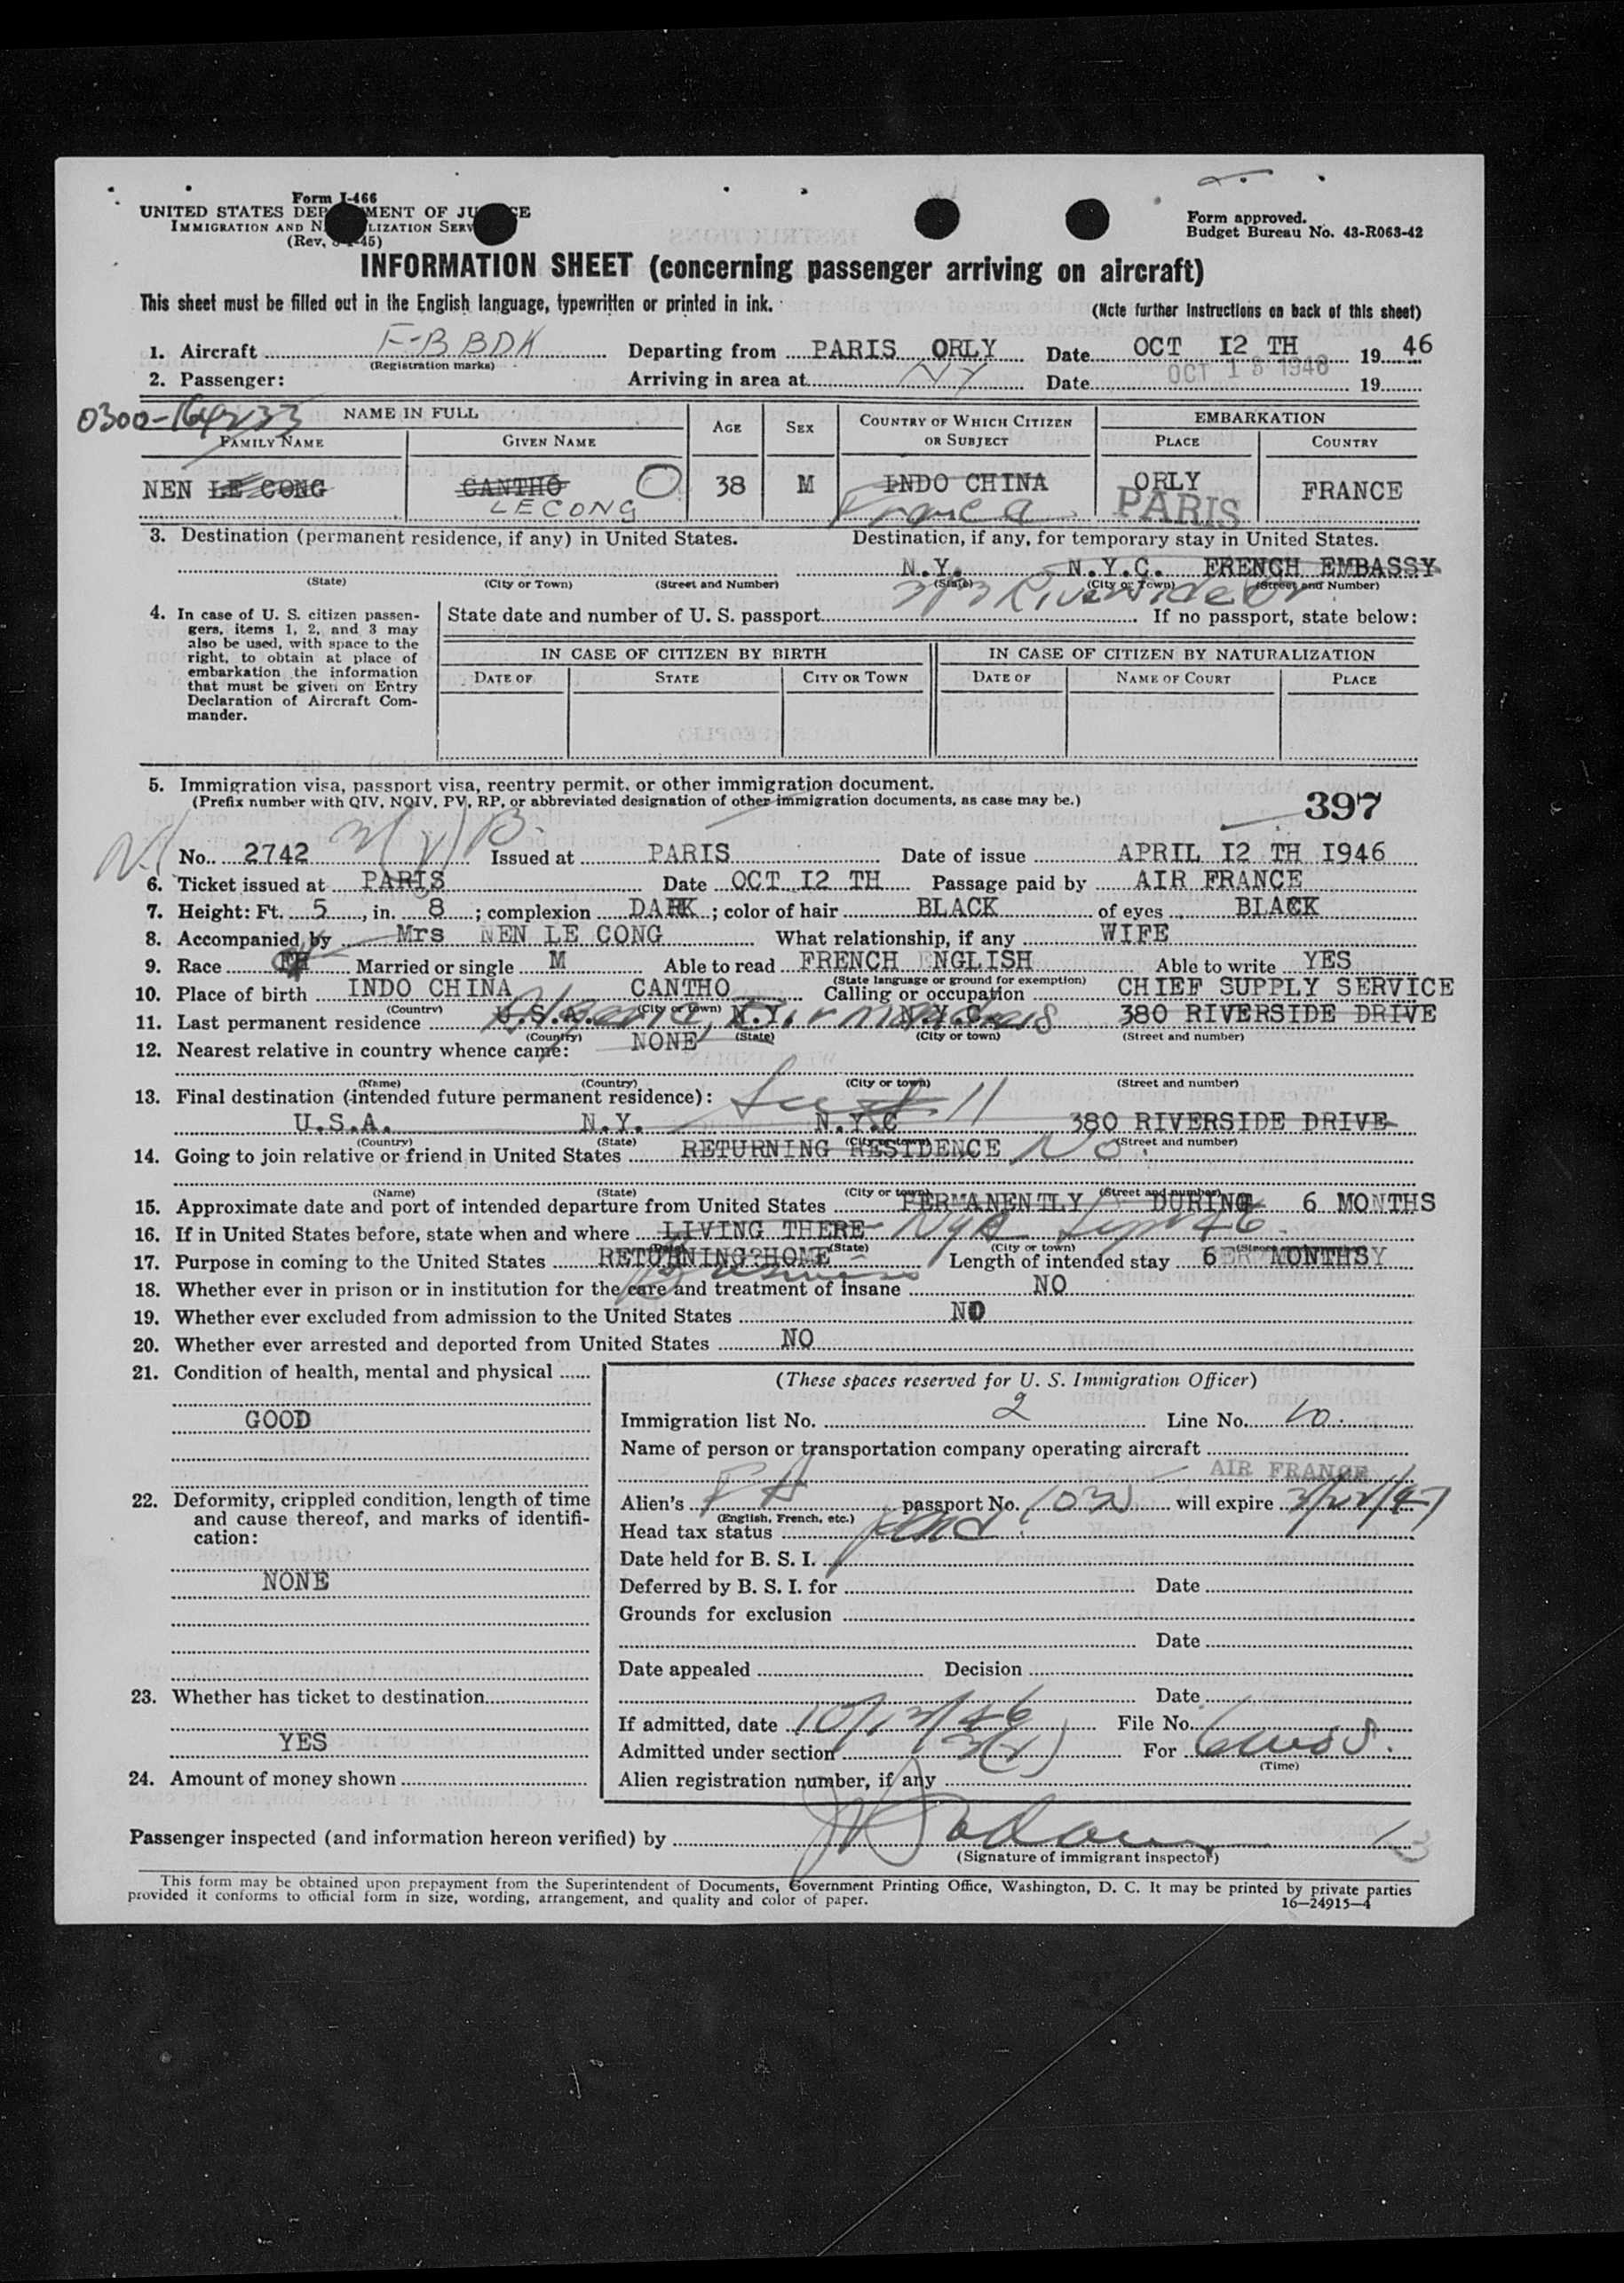 Form I-466
UNITED STATES DEP MENT OF JU E
IMMIGRATION AND N LIZATION SERV
(Rev. 45)
Form approved.
Budget Bureau No. 43-R063-42
INFORMATION SHEET (concerning passenger arriving on aircraft)
This sheet must be filled out in the English language, typewritten or printed in ink.
(Note further instructions on back of this sheet)
1. Aircraft F-BBDK Departing from PARIS ORLY Date OCT I2 TH 1946
(Registration marks)
2. Passenger: Arriving in area at NY Date OCT 13 1946 19
0300-164233
NAME IN FULL AGE SEX COUNTRY OF WHICH CITIZEN OR SUBJECT EMBARKATION
FAMILY NAME GIVEN NAME PLACE COUNTRY
NEN LE CONG CANTHO 38 M INDO CHINA ORLY FRANCE
LECONG France PARIS
3. Destination (permanent residence, if any) in United States. Destination, if any, for temporary stay in United States.
N.Y. N.Y.C. FRENCH EMBASSY
(State) (City or Town) (Street and Number) (State) (City or Town) (Street and Number)
Riverside Dr
4. In case of U. S. citizen passengers, items 1, 2, and 3 may also be used, with space to the right, to obtain at place of embarkation the information that must be given on Entry Declaration of Aircraft Commander.
State date and number of U. S. passport If no passport, state below:
IN CASE OF CITIZEN BY BIRTH IN CASE OF CITIZEN BY NATURALIZATION
DATE OF STATE CITY OR TOWN DATE OF NAME OF COURT PLACE
5. Immigration visa, passport visa, reentry permit, or other immigration document.
(Prefix number with QIV, NQIV, PV, RP, or abbreviated designation of other immigration documents, as case may be.)
397
No. 2742 Issued at PARIS Date of issue APRIL I2 TH I946
6. Ticket issued at PARIS Date OCT I2 TH Passage paid by AIR FRANCE
7. Height: Ft. 5, in. 8; complexion DARK; color of hair BLACK of eyes BLACK
8. Accompanied by Mrs NEN LE CONG What relationship, if any WIFE
9. Race Married or single M Able to read FRENCH ENGLISH Able to write YES
(State language or ground for exemption)
10. Place of birth INDO CHINA CANTHO Calling or occupation CHIEF SUPPLY SERVICE
(Country) (City or town)
11. Last permanent residence U.S.A. N.Y. N.Y.C. 380 RIVERSIDE DRIVE
(Country) (State) (City or town) (Street and number)
12. Nearest relative in country whence came: NONE
(Name) (Country) (City or town) (Street and number)
13. Final destination (intended future permanent residence):
U.S.A. N.Y. N.Y.C 380 RIVERSIDE DRIVE
(Country) (State) (City or town) (Street and number)
14. Going to join relative or friend in United States RETURNING RESIDENCE No
(Name) (State) (City or town) (Street and number)
15. Approximate date and port of intended departure from United States PERMANENTLY DURING 6 MONTHS
16. If in United States before, state when and where LIVING THERE
(Date) (State) (City or town)
17. Purpose in coming to the United States RETURNING HOME Length of intended stay 6 MONTHS
Business
18. Whether ever in prison or in institution for the care and treatment of insane NO
19. Whether ever excluded from admission to the United States NO
20. Whether ever arrested and deported from United States NO
21. Condition of health, mental and physical
GOOD
22. Deformity, crippled condition, length of time and cause thereof, and marks of identification:
NONE
23. Whether has ticket to destination
YES
24. Amount of money shown
(These spaces reserved for U. S. Immigration Officer)
Immigration list No. 2 Line No. 10
Name of person or transportation company operating aircraft
AIR FRANCE
Alien's passport No. will expire
(English, French, etc.)
Head tax status
Date held for B. S. I.
Deferred by B. S. I. for Date
Grounds for exclusion
Date
Date appealed Decision
Date
If admitted, date 10/13/46 File No.
Admitted under section 3(2) For 6 mos.
(Time)
Alien registration number, if any
Passenger inspected (and information hereon verified) by
(Signature of immigrant inspector)
This form may be obtained upon prepayment from the Superintendent of Documents, Government Printing Office, Washington, D. C. It may be printed by private parties
provided it conforms to official form in size, wording, arrangement, and quality and color of paper.
16—24915-4